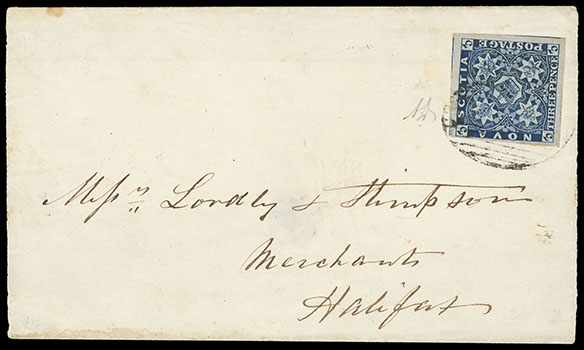 POSTAGE
THREE PENCE
NOVA
SCOTIA
Mess.rs Lordly & Stimpson
Merchants
Halifax